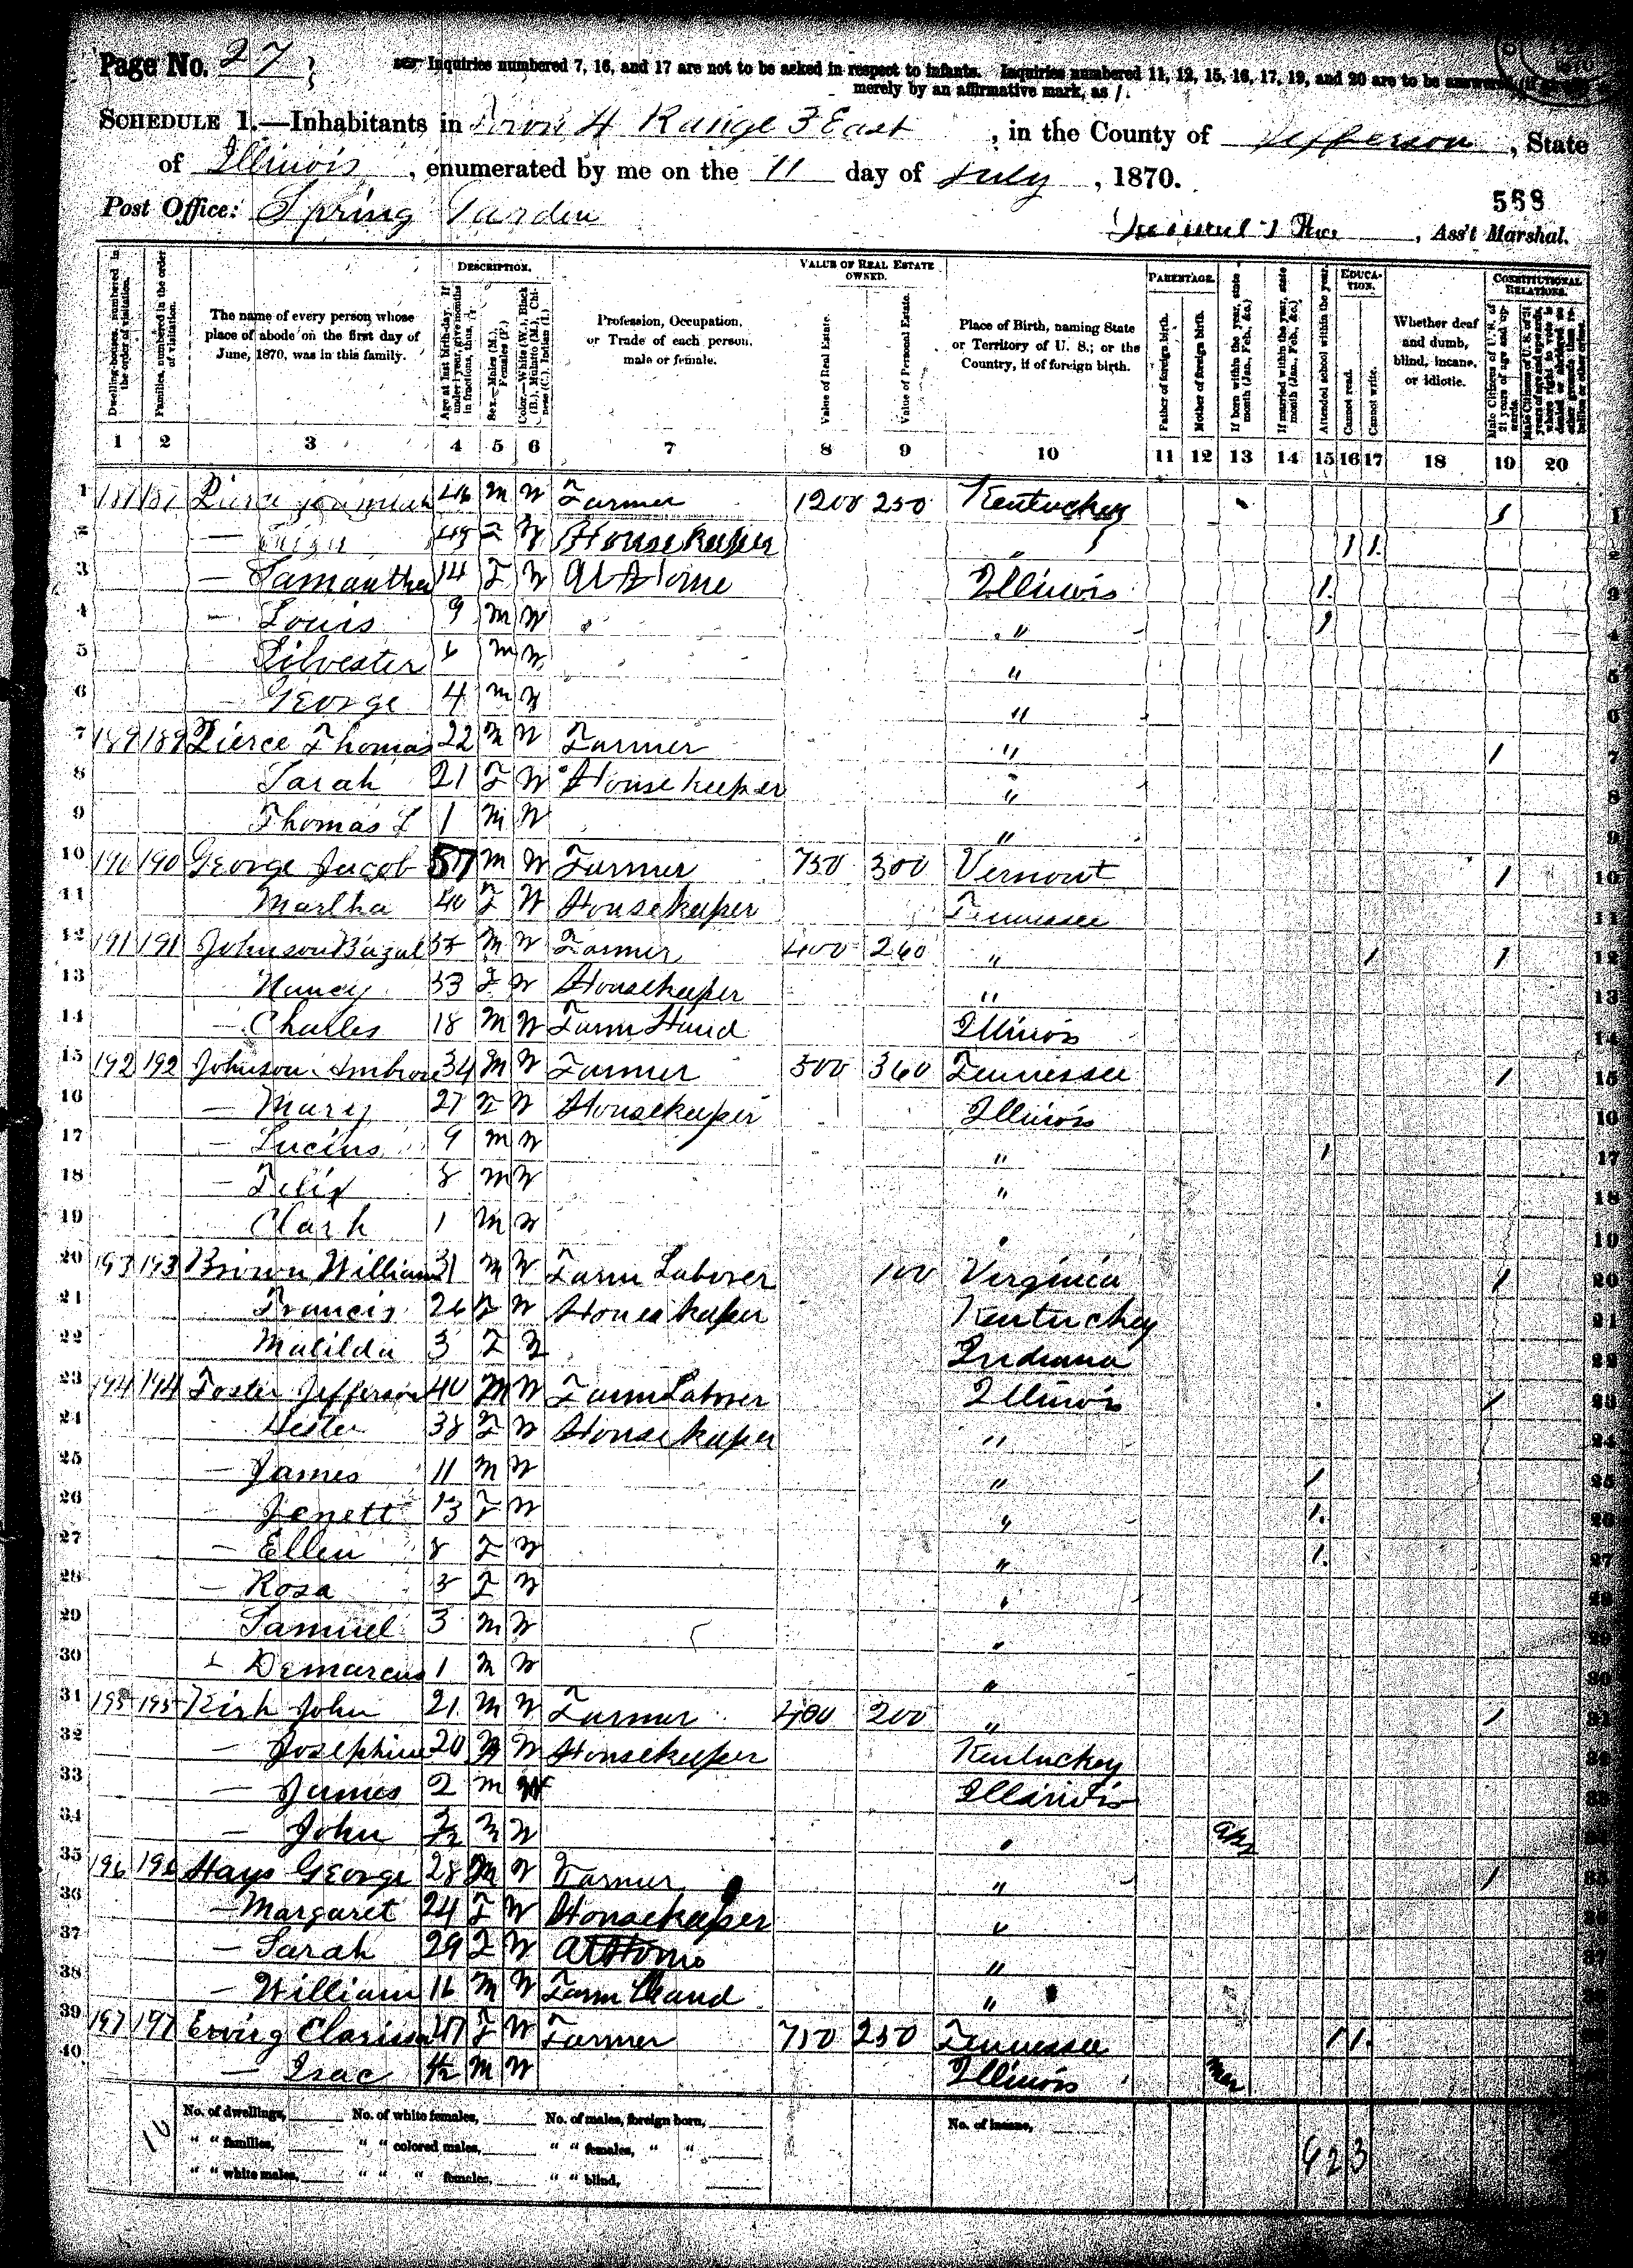 Page No. 27
Inquiries numbered 7, 16, and 17 are not to be asked in respect to infants. Inquiries numbered 11, 12, 15, 16, 17, 19, and 20 are to be answered
merely by an affirmative mark, as /.
SCHEDULE 1.—Inhabitants in Town 4 Range 3 East, in the County of Jefferson, State
of Illinois, enumerated by me on the 11 day of July, 1870.
568
Post Office: Spring Garden
, Ass't Marshal.
DESCRIPTION.
VALUE OF REAL ESTATE OWNED.
PARENTAGE.
EDUCATION.
CONSTITUTIONAL RELATIONS.
Dwelling-houses, numbered in the order of visitation.
Families, numbered in the order of visitation.
The name of every person whose place of abode on the first day of June, 1870, was in this family.
Age at last birth-day. If under 1 year, give months in fractions, thus,
Sex.—Males (M.), Females (F.)
Color.—White (W.), Black (B.), Mulatto (M.), Chinese (C.), Indian (I.)
Profession, Occupation, or Trade of each person, male or female.
Value of Real Estate.
Value of Personal Estate.
Place of Birth, naming State or Territory of U. S.; or the Country, if of foreign birth.
Father of foreign birth.
Mother of foreign birth.
If born within the year, state month (Jan. Feb., &c.)
If married within the year, state month (Jan. Feb., &c.)
Attended school within the year.
Cannot read.
Cannot write.
Whether deaf and dumb, blind, insane, or idiotic.
Male Citizens of U. S. of 21 years of age and upwards.
1 2 3 4 5 6 7 8 9 10 11 12 13 14 15 16 17 18 19 20
1 187 187 Pierce 46 M W Farmer 1200 250 Kentucky 1 1
2 — 45 F W Housekeeper " 1 1 2
3 — Samantha 14 F W At Home Illinois 1 3
4 — Louis 9 M W " 1 4
5 Silvester 6 M W " 5
6 — George 4 M W " 6
7 189 189 Pierce Thomas 22 M W Farmer " 1 7
8 Sarah 21 F W Housekeeper " 8
9 Thomas L 1 M W " 9
10 190 190 George Jacob 57 M W Farmer 750 300 Vermont 1 10
11 Martha 40 F W Housekeeper Tennessee 11
12 191 191 Johnson Bazal 55 M W Farmer 400 260 " 1 1 12
13 Nancy 53 F W Housekeeper " 13
14 — Charles 18 M W Farm Hand Illinois 14
15 192 192 Johnson Ambrose 34 M W Farmer 500 360 Tennessee 1 15
16 — Mary 27 F W Housekeeper Illinois 16
17 — Lucius 9 M W " 1 17
18 — Felix 8 M W " 18
19 Clark 1 M W " 19
20 193 193 Brown William 31 M W Farm Laborer 100 Virginia 1 20
21 Francis 26 F W Housekeeper Kentuckey 21
22 Matilda 3 F W Indiana 22
23 194 194 Foster Jefferson 40 M W Farm Laborer Illinois 1 23
24 Hester 38 F W Housekeeper " 24
25 — James 11 M W " 1 25
26 — Jenett 13 F W " 1 26
27 — Ellen 8 F W " 1 27
28 — Rosa 5 F W " 28
29 Samuel 3 M W " 29
30 — Demarcus 1 M W " 30
31 195 195 Kirk John 21 M W Farmer 400 200 " 1 31
32 — Josephine 20 W Housekeeper Kentuckey
33 — James 2 M W Illinois 33
34 — John 2/12 M W " Apr
35 196 196 Hays George 28 M W Farmer " 1
36 — Margaret 24 F W Housekeeper "
37 — Sarah 29 F W At Home "
38 — William 16 M W Farm Hand "
39 197 197 Clarissa 47 F W Farmer 750 250 Tennessee 1 1
40 — Isac M W Illinois Mar
No. of dwellings, No. of white females, No. of males, foreign born, No. of insane,
" " families, " " colored males, " " females, " "
" " white males, " " " females, " " blind,
10
6 2 3